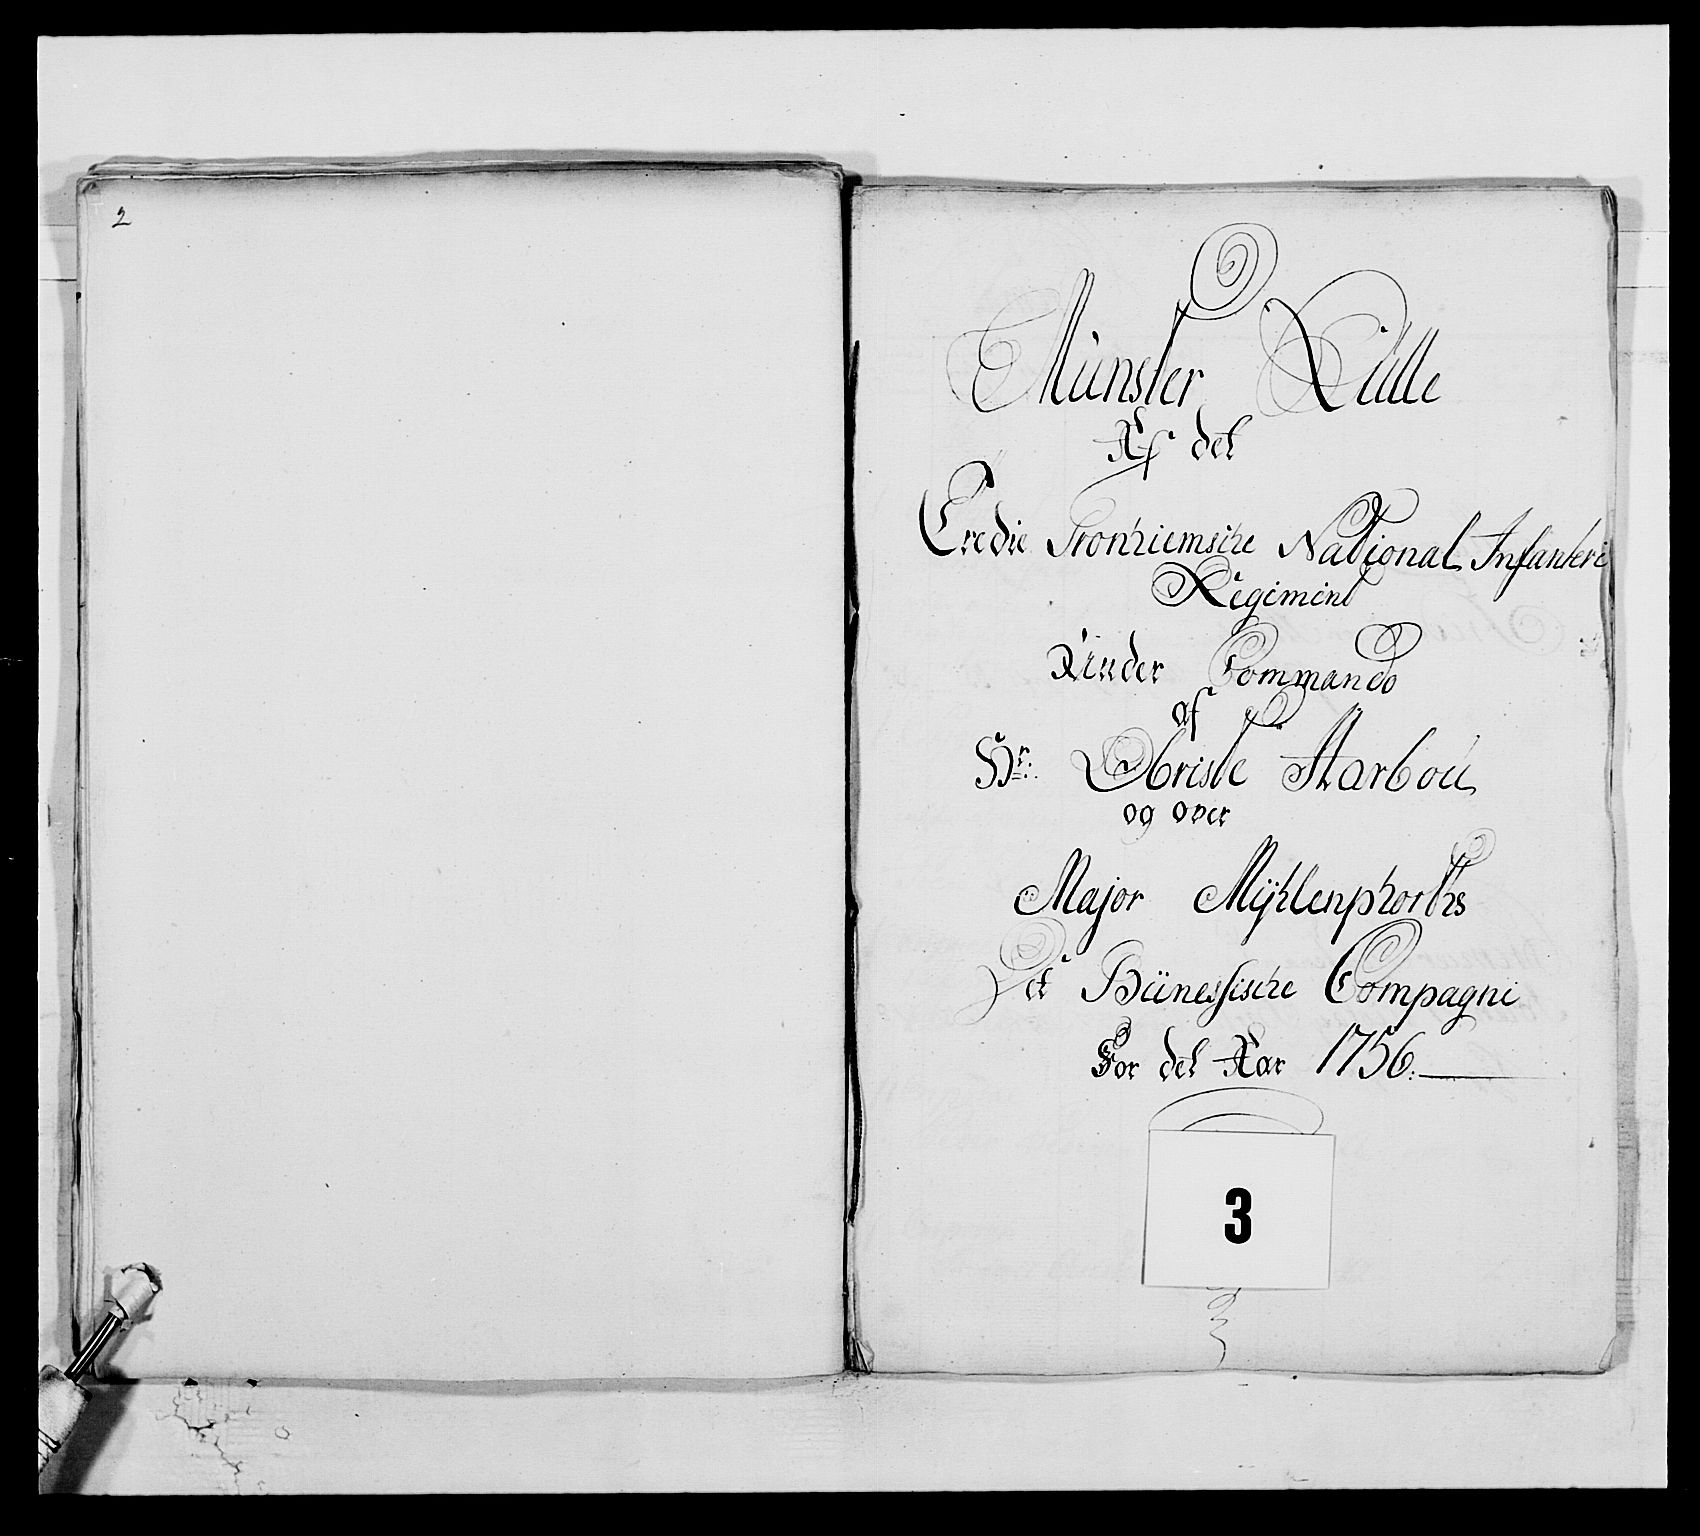 2
Münster Rulle
Af det
Tredie Tronhiemsche National Infanteri
Regiment
Under Commando
af
Hr: Obriste Harbou
og over
Major Mÿhlenphorths
Et Bünessische Compagni
For det Aar 1756.
3